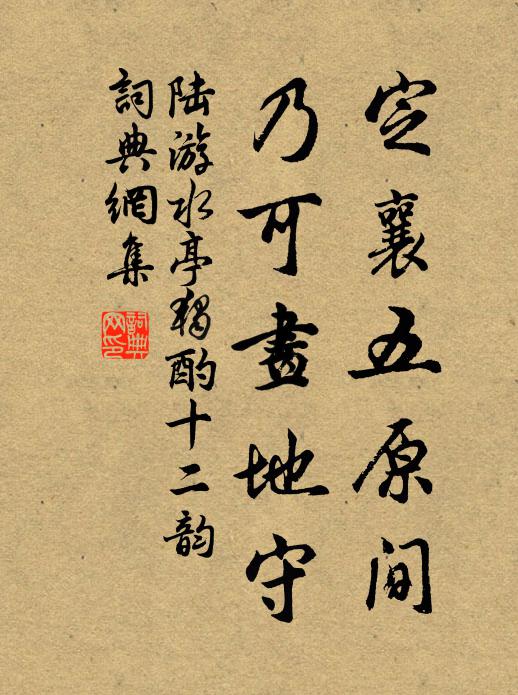 定襄五原间
乃可畫地守
陆游水亭獨酌十二韵
詞典網集
詞典網印